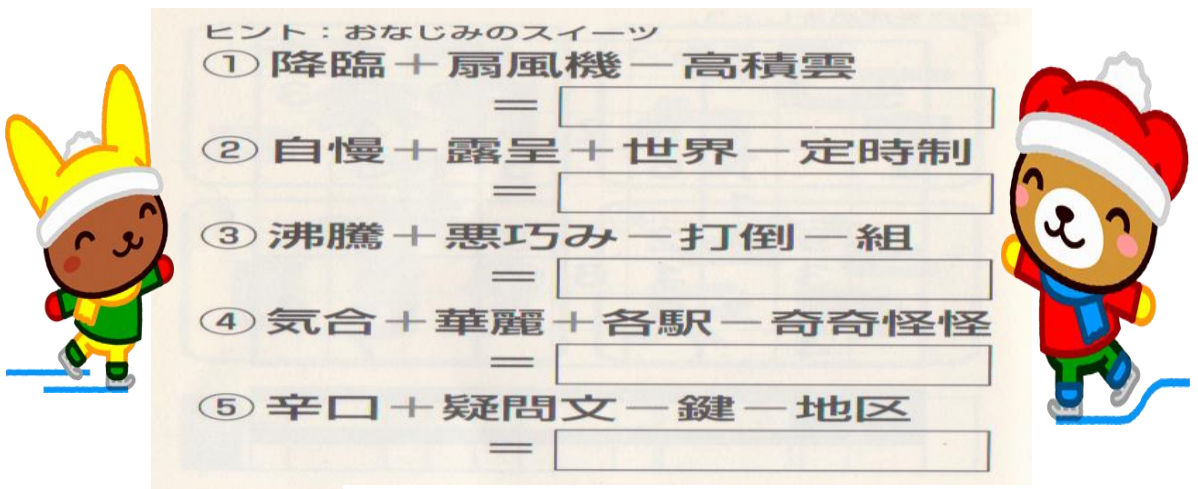 ヒント：おなじみのスイーツ
①降臨＋扇風機－高積雲
＝
②自慢＋露呈＋世界－定時制
＝
③沸騰＋悪巧み－打倒－組
＝
④気合＋華麗＋各駅－奇奇怪怪
＝
⑤辛口＋疑問文－鍵－地区
＝